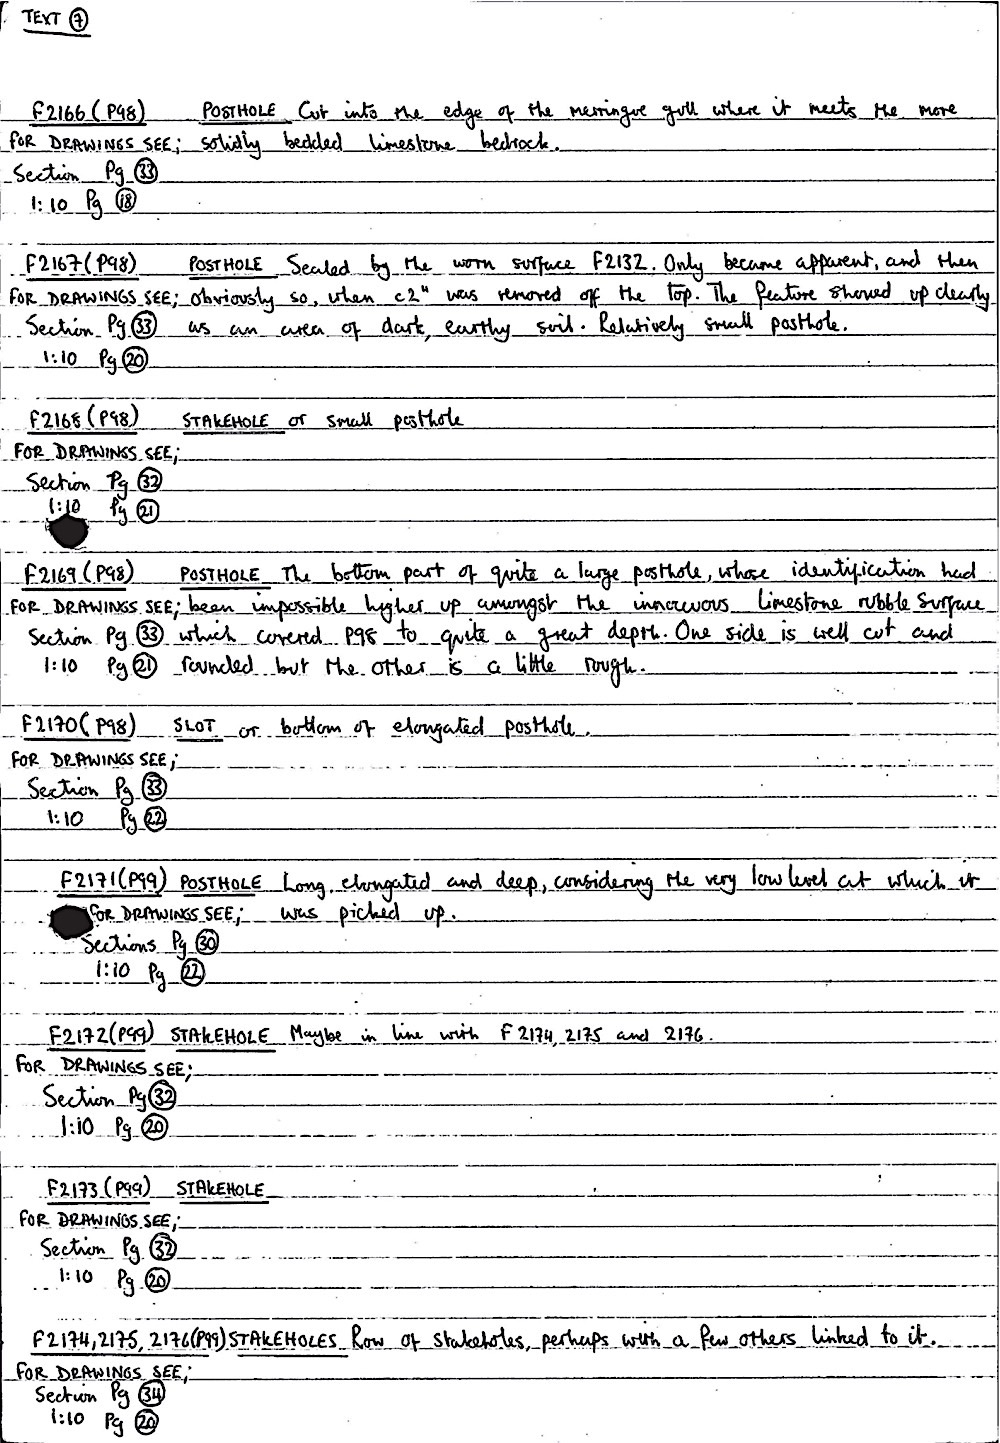 TEXT 7
F2166 (P98) POSTHOLE Cut into the edge of the merringue gull where it meets the more
FOR DRAWINGS SEE; solidly bedded limestone bedrock.
Section Pg 33
1:10 Pg 18
F2167 (P98) POSTHOLE Sealed by the worn surface F2132. Only became apparent, and then
FOR DRAWINGS SEE; obviously so, when c2" was removed off the top. The feature showed up clearly
Section Pg 33 as an area of dark, earthy soil. Relatively small posthole.
1:10 Pg 20
F2168 (P98) STAKEHOLE or small posthole
FOR DRAWINGS SEE;
Section Pg 32
1:10 Pg 21
F2169 (P98) POSTHOLE The bottom part of quite a large posthole, whose identification had
FOR DRAWINGS SEE; been impossible higher up amongst the innocuous limestone rubble surface
Section Pg 33 which covered P98 to quite a great depth. One side is well cut and
1:10 Pg 21 rounded but the other is a little rough.
F2170 (P98) SLOT or bottom of elongated posthole.
FOR DRAWINGS SEE;
Section Pg 33
1:10 Pg 22
F2171 (P99) POSTHOLE Long, elongated and deep, considering the very low level at which it
FOR DRAWINGS SEE; was picked up.
Sections Pg 30
1:10 Pg 22
F2172 (P99) STAKEHOLE Maybe in line with F2174, 2175 and 2176.
FOR DRAWINGS SEE;
Section Pg 32
1:10 Pg 20
F2173 (P99) STAKEHOLE
FOR DRAWINGS SEE;
Section Pg 32
1:10 Pg 20
F2174, 2175, 2176 (P99) STAKEHOLES Row of stakeholes, perhaps with a few others linked to it.
FOR DRAWINGS SEE;
Section Pg 34
1:10 Pg 20